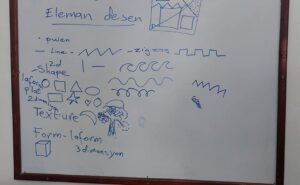 Eleman desen
• pwen
- line - zigzag
- 2d
Shape
laform
plat
2dim
Texture
Form-laform
3 dimansyon